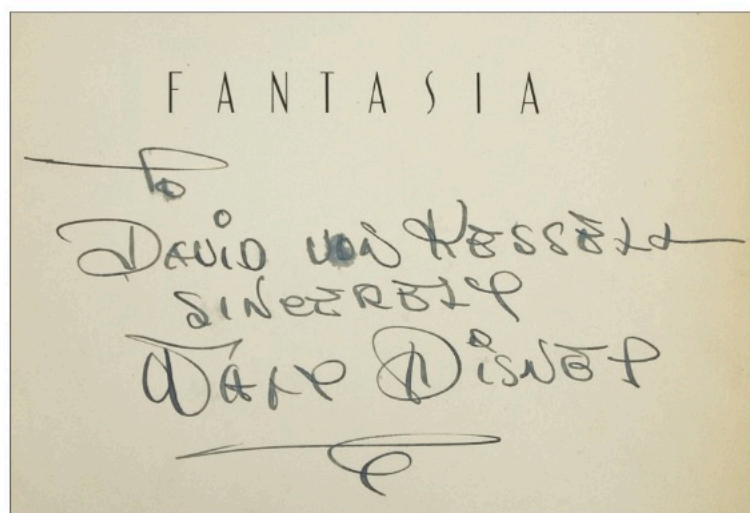 FANTASIA
To
DAVID VON KESSELL
SINCERELY
WALT DISNEY